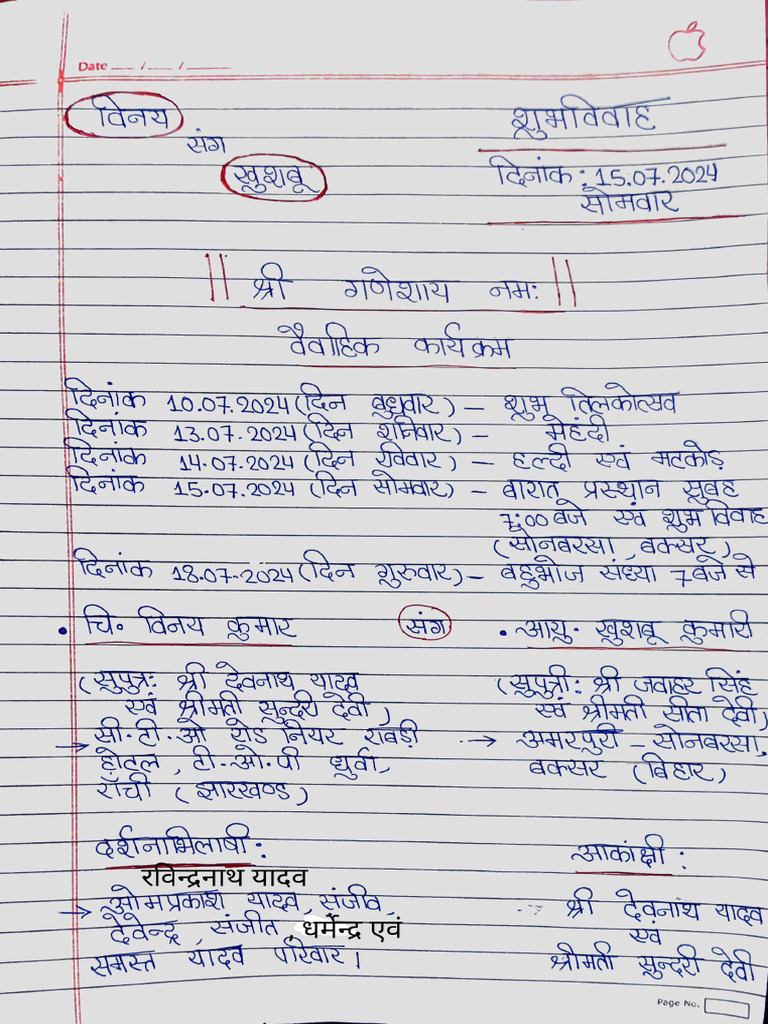 Date ___ / ___ / ___
विनय
संग
खुशबू
शुभविवाह
दिनांक : 15.07.2024
सोमवार
|| श्री गणेशाय नमः ||
वैवाहिक कार्यक्रम
दिनांक 10.07.2024 (दिन बुधवार) – शुभ तिलकोत्सव
दिनांक 13.07.2024 (दिन शनिवार) – मेहंदी
दिनांक 14.07.2024 (दिन रविवार) – हल्दी एवं मटकोड़
दिनांक 15.07.2024 (दिन सोमवार) – बारात प्रस्थान सुबह
7:00 बजे एवं शुभ विवाह
(सोनबरसा, बक्सर)
दिनांक 18.07.2024 (दिन गुरुवार) – बहुभोज संध्या 7 बजे से
• चि॰ विनय कुमार संग • आयु. खुशबू कुमारी
(सुपुत्र: श्री देवनाथ यादव
एवं श्रीमती सुन्दरी देवी)
→ सी.टी.ओ रोड नियर राबड़ी
होटल, टी.ओ.पी धुर्वा,
राँची (झारखण्ड)
(सुपुत्री: श्री जवाहर सिंह
एवं श्रीमती सीता देवी)
→ अमरपुरी – सोनबरसा,
बक्सर (बिहार)
दर्शनाभिलाषी :
रविन्द्रनाथ यादव
→ ओमप्रकाश यादव, संजीव,
देवेन्द्र, संजीत, धर्मेन्द्र एवं
समस्त यादव परिवार।
आकांक्षी :
→ श्री देवनाथ यादव
एवं
श्रीमती सुन्दरी देवी
Page No.